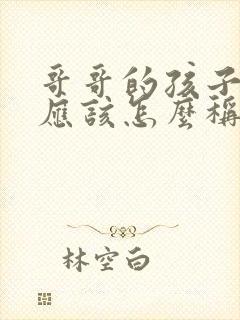 哥哥的孩子
應該怎麼稱
林空白